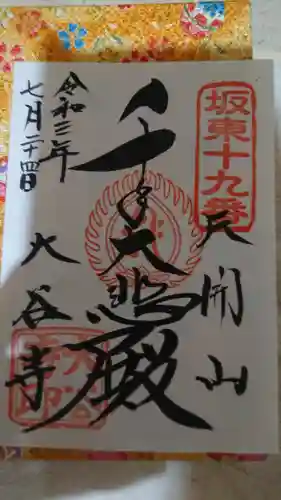 坂東十九番
天開山
千手大悲殿
令和三年
七月二十四日
大谷寺